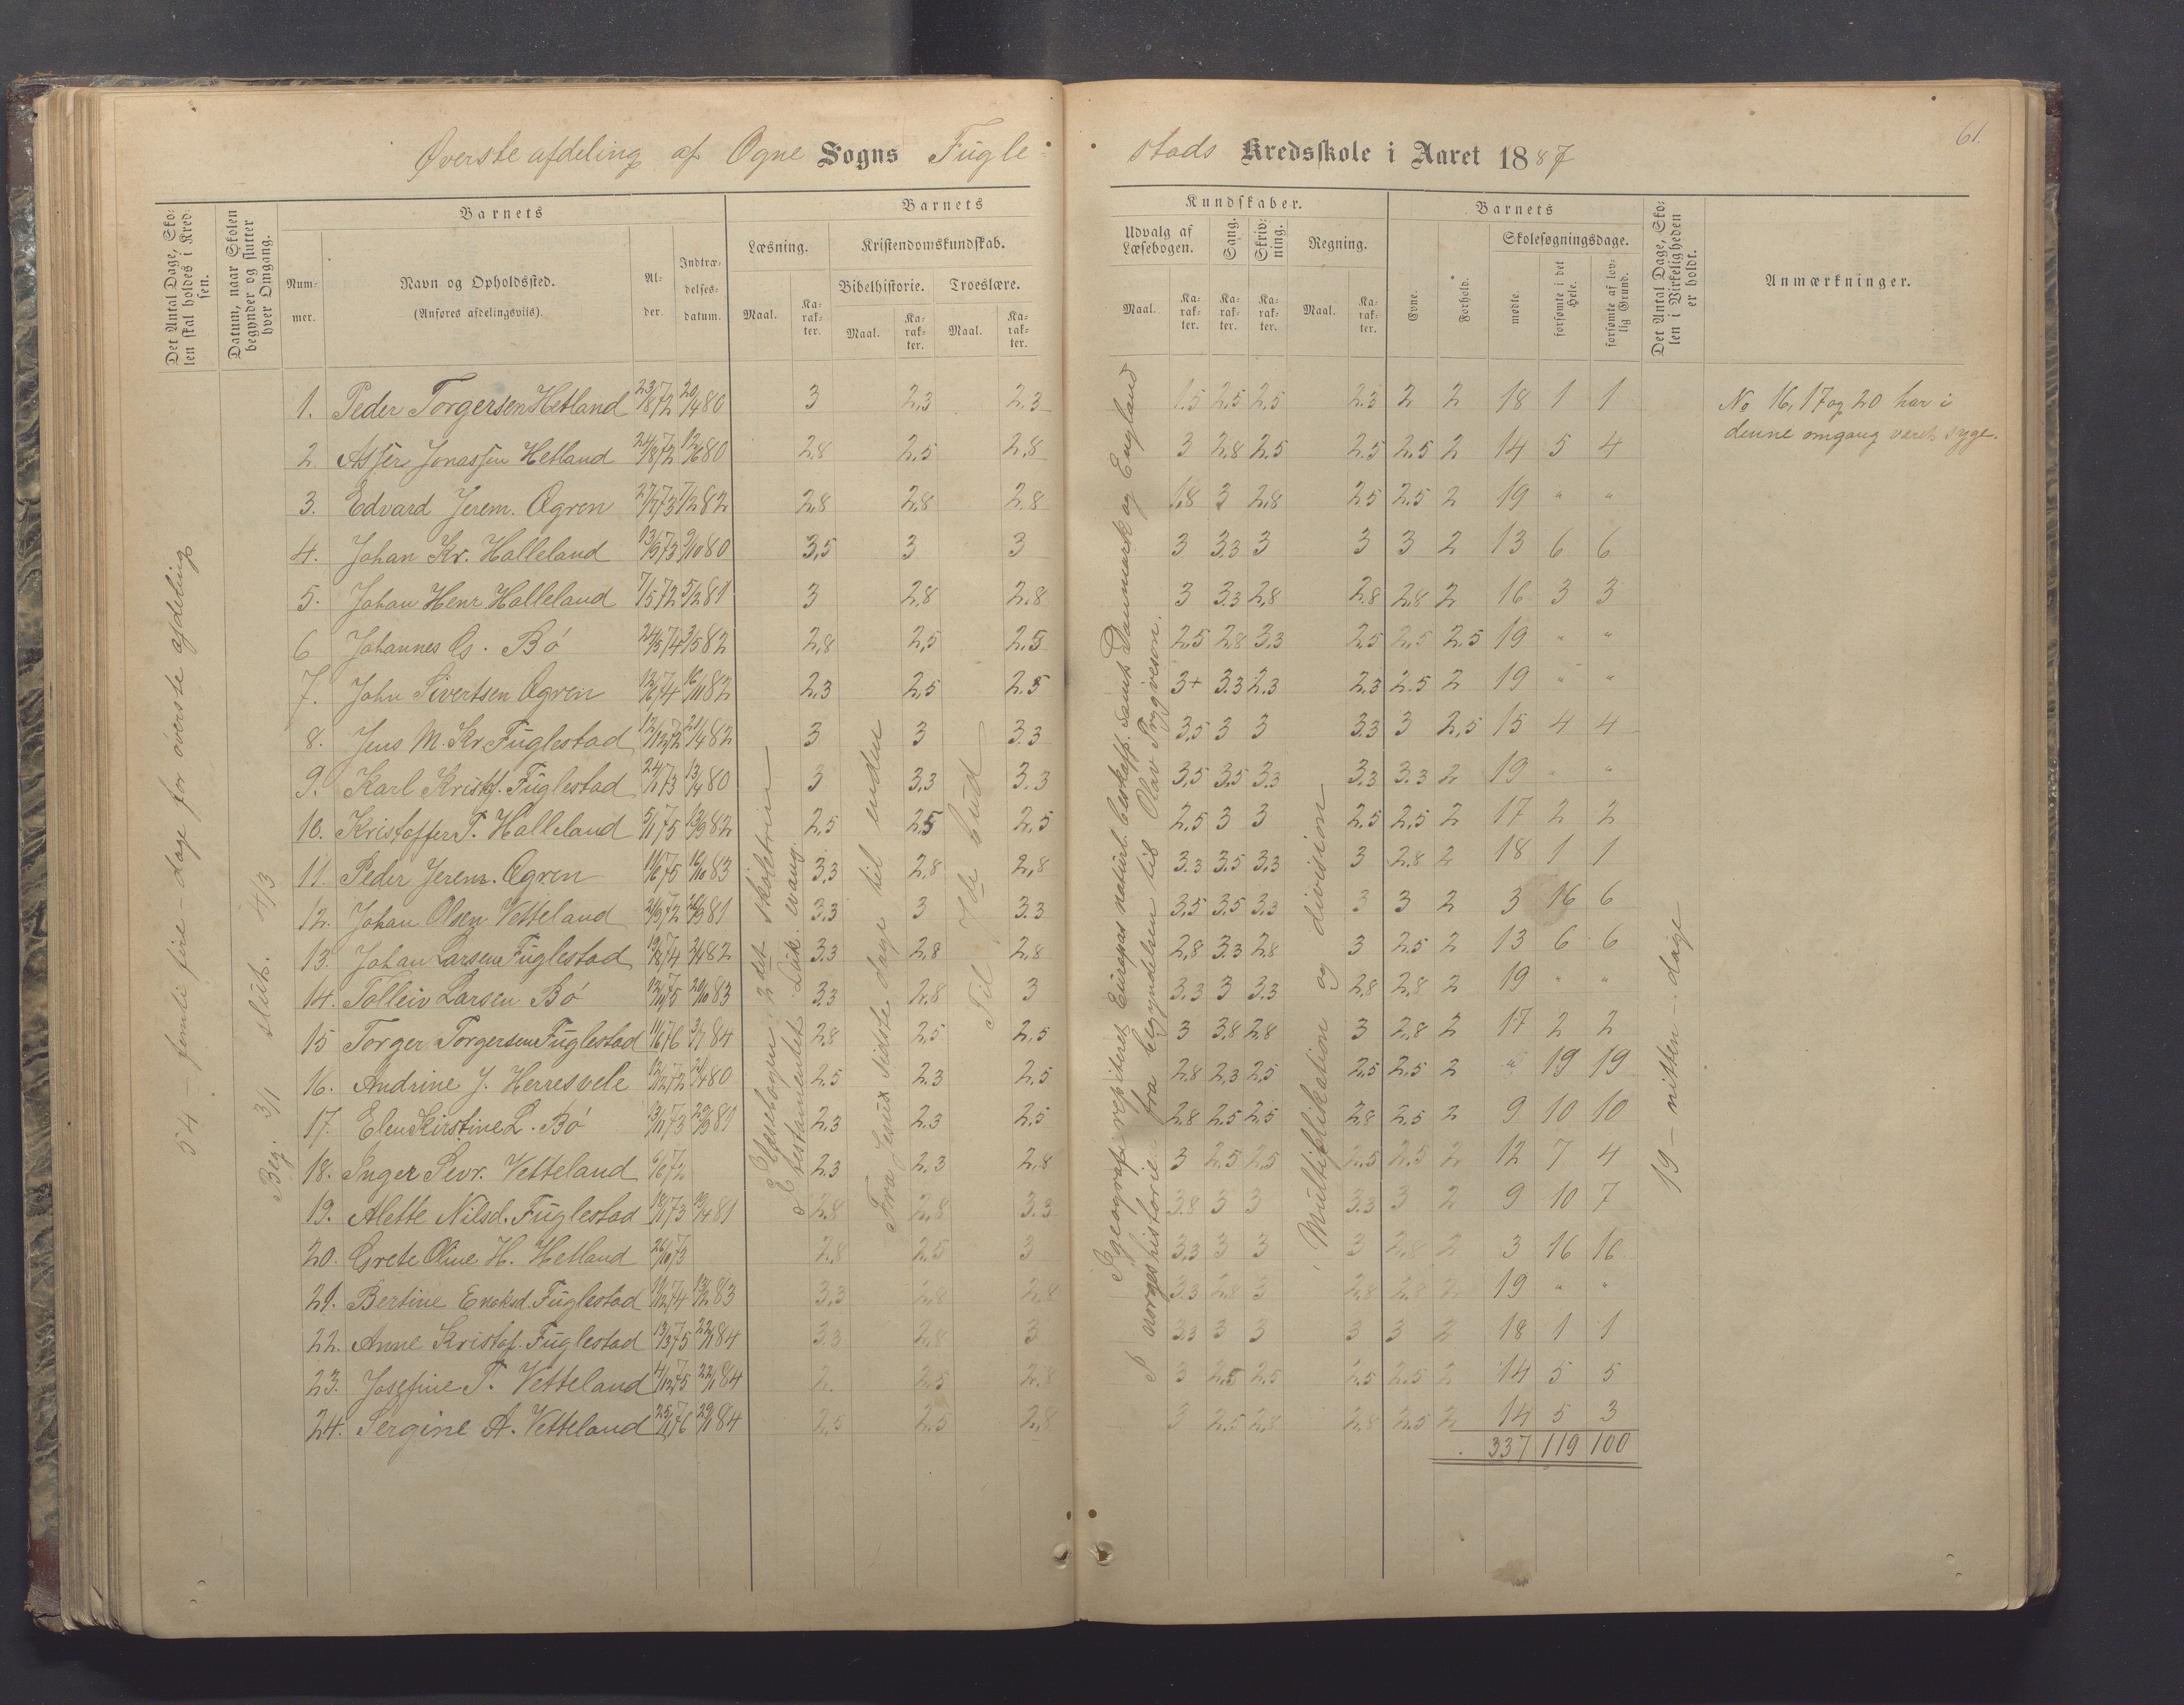 61.
Øverste afdeling af Ogne Sogns Fugle- stads Kredsskole i Aaret 1887
Det Antal Dage, Skolen skal holdes i Kredsen.
Datum, naar Skolen begynder og slutter hver Omgang.
Barnets
Nummer.
Navn og Opholdssted.
(Anføres afdelingsviis).
Alder.
Indtrædelsesdatum.
Barnets Kundskaber.
Læsning.
Maal. Karakter.
Kristendomskundskab.
Bibelhistorie. Troeslære.
Maal. Karakter. Maal. Karakter.
Udvalg af Læsebogen.
Maal. Karakter.
Sang. Karakter.
Skrivning. Karakter.
Regning.
Maal. Karakter.
Barnets
Evne. Forhold.
Skolesøgningsdage.
mødte. forsømte i det Hele. forsømte af lovlig Grund.
Det Antal Dage, Skolen i Virkeligheden er holdt.
Anmærkninger.
54 – femti fire – dage for øverste afdeling
Beg. 3/1 slut. 4/3
Læsebogen 3det skoletrin
testamentet Luk. evang.
Fra Jesux sidste dage til enden
Til 7de bud
geografi repiteret Europas naturl. beskaff. samt Danmark og England
norges historie fra begyndelsen til Olav Trygveson.
Multiplikation og division
19 – nitten – dage
1. Peder Torgersen Hetland 23/8 72 20/4 80 3 2,3 2.3 1.5 2,5 2,5 2.3 2 2 18 1 1 No 16, 17 og 20 har i
2. Asser Jonassen Hetland 24/8 72 12/6 80 2,8 2,5 2,8 3 2,8 2.5 2.5 2.5 2 14 5 4 denne omgang været syge.
3. Edvard Jerem. Ogren 27/7 73 7/2 82 2,8 2,8 2.8 1,8 3 2,8 2.5 2.5 2 19 " "
4. Johan Kr. Halleland 13/9 73 9/10 80 3,5 3 3 3 3.3 3 3 3 2 13 6 6
5. Johan Henr Halleland 7/5 72 5/2 81 3 2,8 2.8 3 3.3 2,8 2.8 2.8 2 16 3 3
6 Johannes G. Bó 24/5 74 3/5 82 2,8 2,5 2.5 2.5 2.8 3.3 2.5 2,5 2.5 19 " "
7. John Sivertsen Ogren 12/6 74 16/11 82 2,3 2,5 2.5 3+ 3.3 2.3 2.3 2.5 2 19 " "
8. Jens M. Kr Fuglestad 12/12 72 21/4 82 3 3 3.3 3,5 3 3 3.3 3 2,5 15 4 4
9. Karl Kristof. Fuglestad 24/1 73 13/4 80 3 3,3 3.3 3,5 3,5 3.3 3.3 3.3 2 19 " "
10. Kristoffer T. Halleland 5/1 75 13/9 82 2,5 2,5 2,5 2.5 3 3 2.5 2,5 2 17 2 2
11. Peder Jerem. Ogren 11/6 75 16/10 83 3,3 2,8 2,8 3.3 3.5 3,3 3 2.8 2 18 1 1
12. Johan Olsen Vetteland 21/9 72 26/9 81 3,3 3 3.3 3,5 3.5 3,3 3 3 2 3 16 6
13. Johan Larsen Fuglestad 19/8 74 21/4 82 3.3 2,8 2,8 2,8 3.3 2.8 3 2.5 2 13 6 6
14. Tolleiv Larsen Bó 12/10 75 20/10 83 3.3 2.8 3 3.3 3 3.3 2,8 2,8 2 19 " "
15 Torger Torgersen Fuglestad 11/6 76 3/7 84 2,8 2,5 2,5 3 3,8 2,8 3 2,8 2 17 2 2
16. Andrine J. Herresvele 12/12 72 21/4 80 2.5 2.3 2,5 2.8 2,3 2,5 2,5 2.5 2 " 19 19
17. Elen Kirstine L. Bó 13/11 73 29/9 81 2,3 2.3 2,5 2,8 2.5 2.5 2,8 2,5 2 9 10 10
18. Inger Sevr. Vetteland 6/6 72 2,3 2.3 2,8 3 2.5 2,5 2,5 2.5 2 12 7 4
19. Alette Nilsd. Fuglestad 18/11 73 19/4 81 2,8 2,8 3.3 3.8 3 3 3.3 3 2 9 10 7
20. Grete Oline H. Hetland 26/10 73 2,8 2.5 3 3,3 3 3 3 2,8 2 3 16 16
21. Bertine Enoksd. Fuglestad 11/12 74 13/12 83 3,3 2,8 2,8 3.3 2,8 3 2,8 2.8 2 19 " "
22. Anne Kristof. Fuglestad 13/3 75 22/1 84 3.3 2,8 3 3.3 3 3 3 3 2 18 1 1
23. Josefine T. Vetteland 4/12 75 22/1 84 2. 2.5 2.8 3 2.5 2.5 2.5 2.5 2 14 5 5
24. Sergine A. Vetteland 25/1 76 29/1 84 2,5 2.5 2,8 3 2.5 2,8 2,8 2.5 2 14 5 3
337 119 100